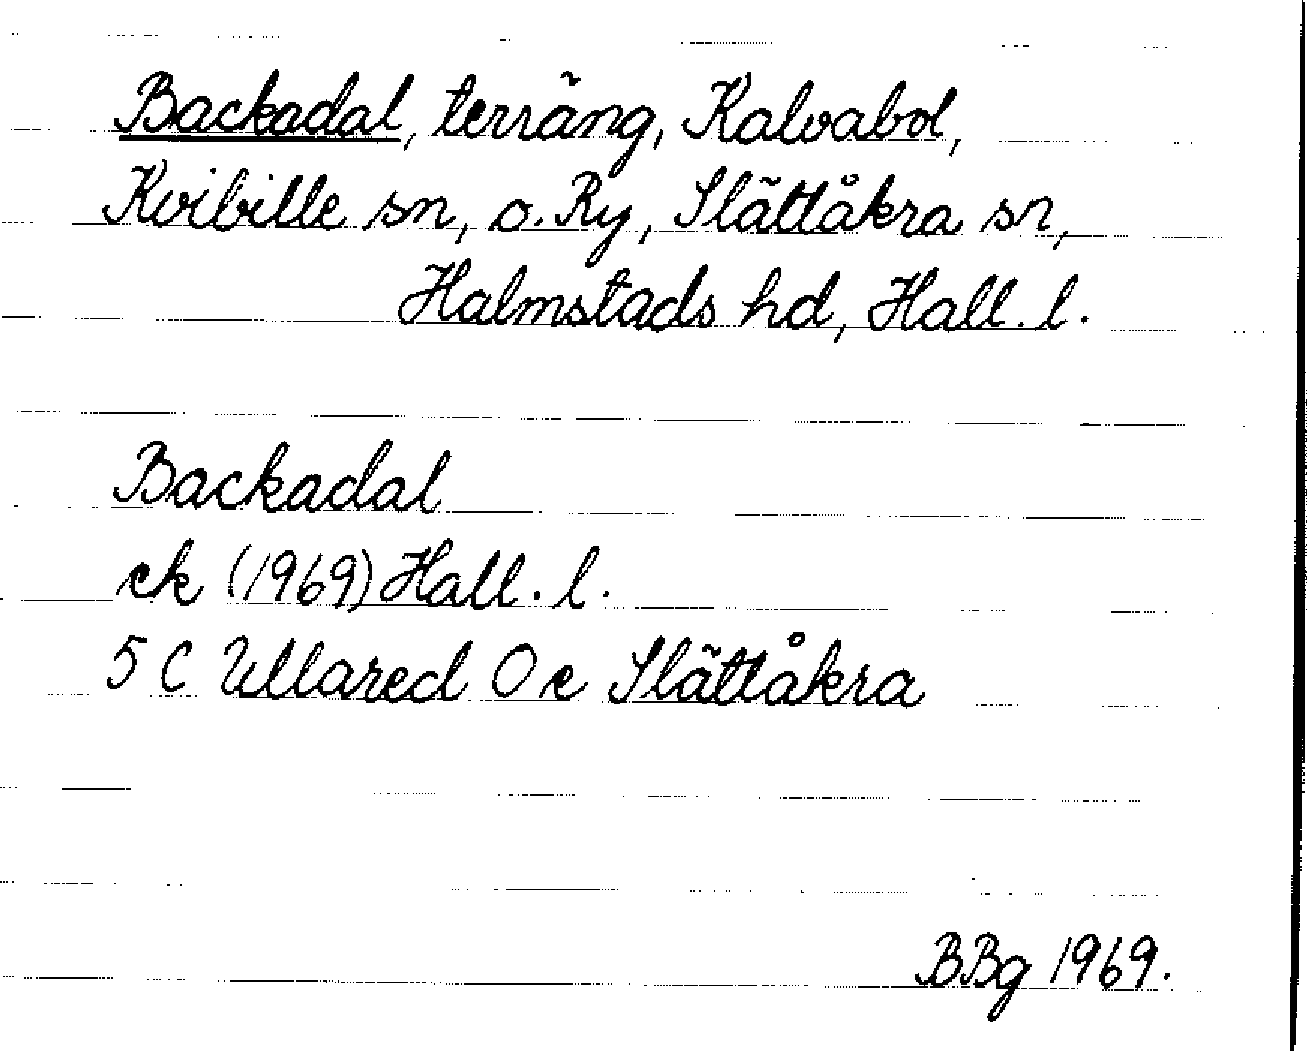 Backadal, terräng, Kalvabol,
Kvibille sn, o. Ry, Slättåkra sn,
Halmstads hd, Hall. l.
Backadal
ek (1969) Hall. l.
5 C Ullared 0 e Slättåkra
BBg 1969.